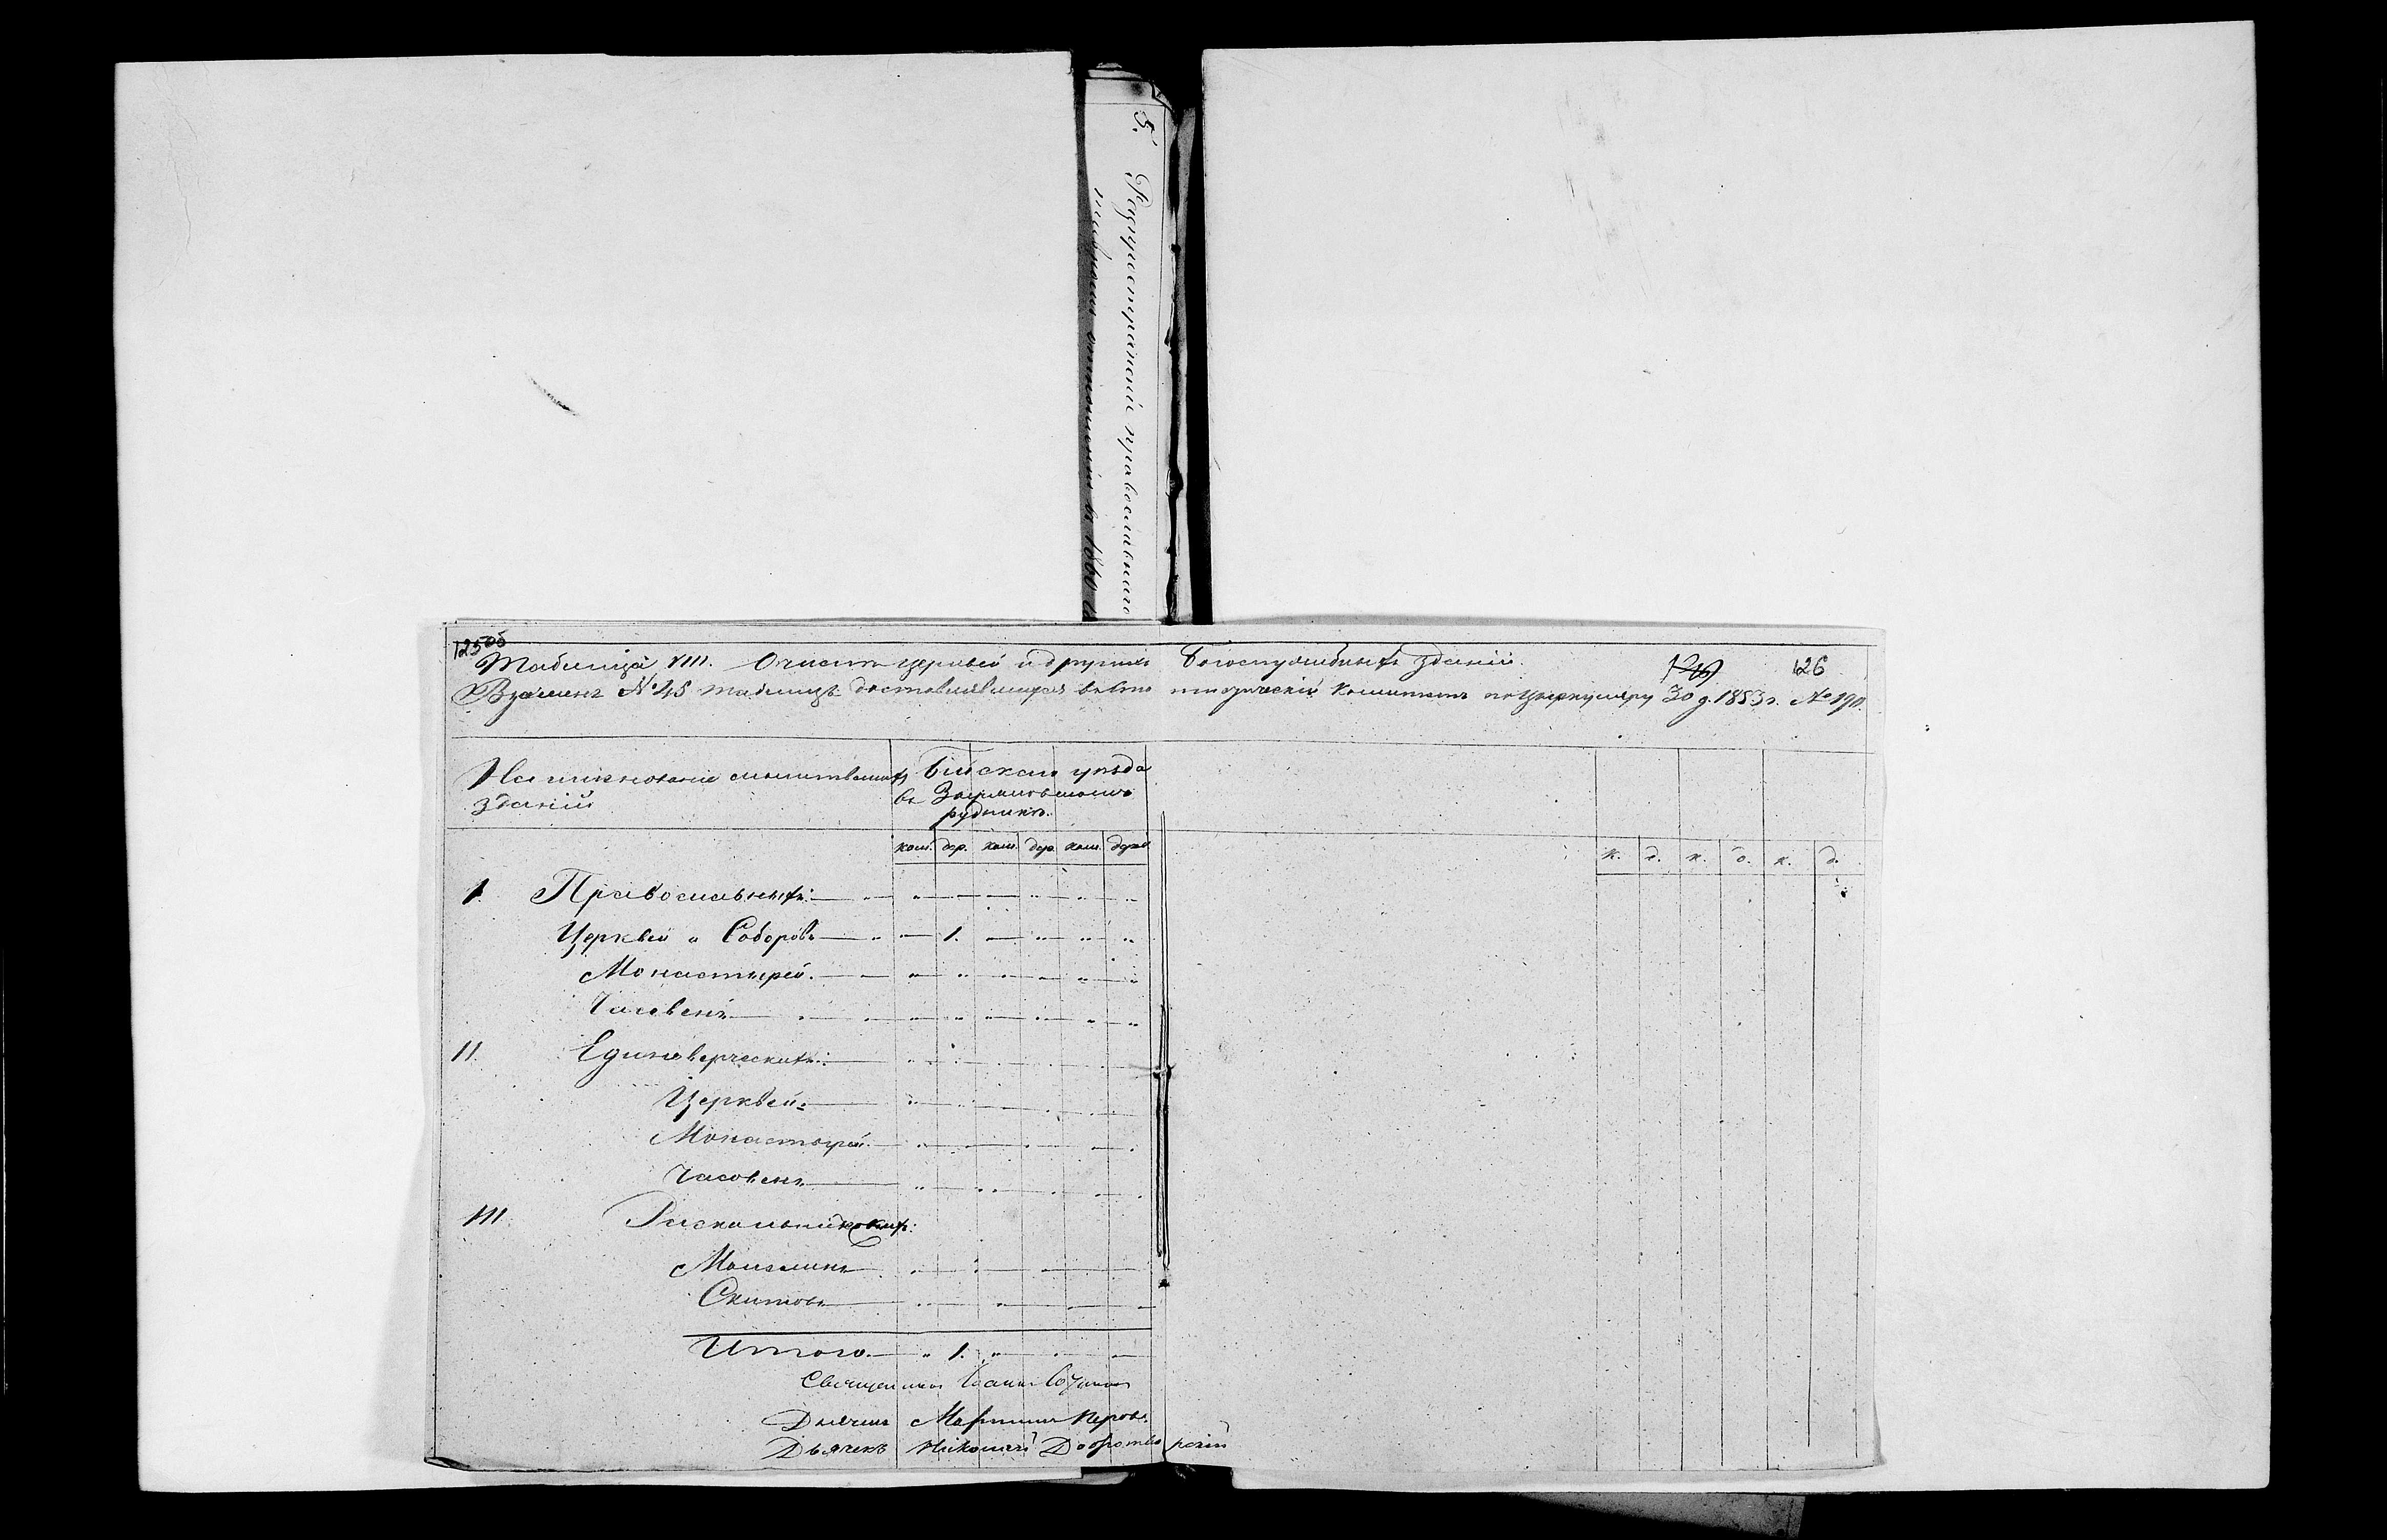 5. Регистратской православнаго
1860
125об
Таблица VIII. О числѣ церквей и другихъ Богослужебныхъ зданій. 126 126
Взаменъ № 45 таблицъ доставлявшихся въ Статистическій Комитетъ по циркуляру 30 д. 1853 г. № 190.
Наименованіе молитвенныхъ зданій
Бійскаго уѣзда
въ Зыряновскомъ
рудникѣ.
кам. дер. кам. дер. кам. дерев.
к. д. к. д. к. д.
I. Православныхъ:
Церквей и Соборовъ 1.
Монастырей.
Часовень
II. Единоверческихъ:
Церквей:
Монастырей.
Часовень
III. Раскольническихъ:
Молелень
Скитовъ
Итого 1.
Священникъ Іоаннъ
Дьячекъ Мартинъ Перовъ.
Дьячекъ Николай Добротворскій